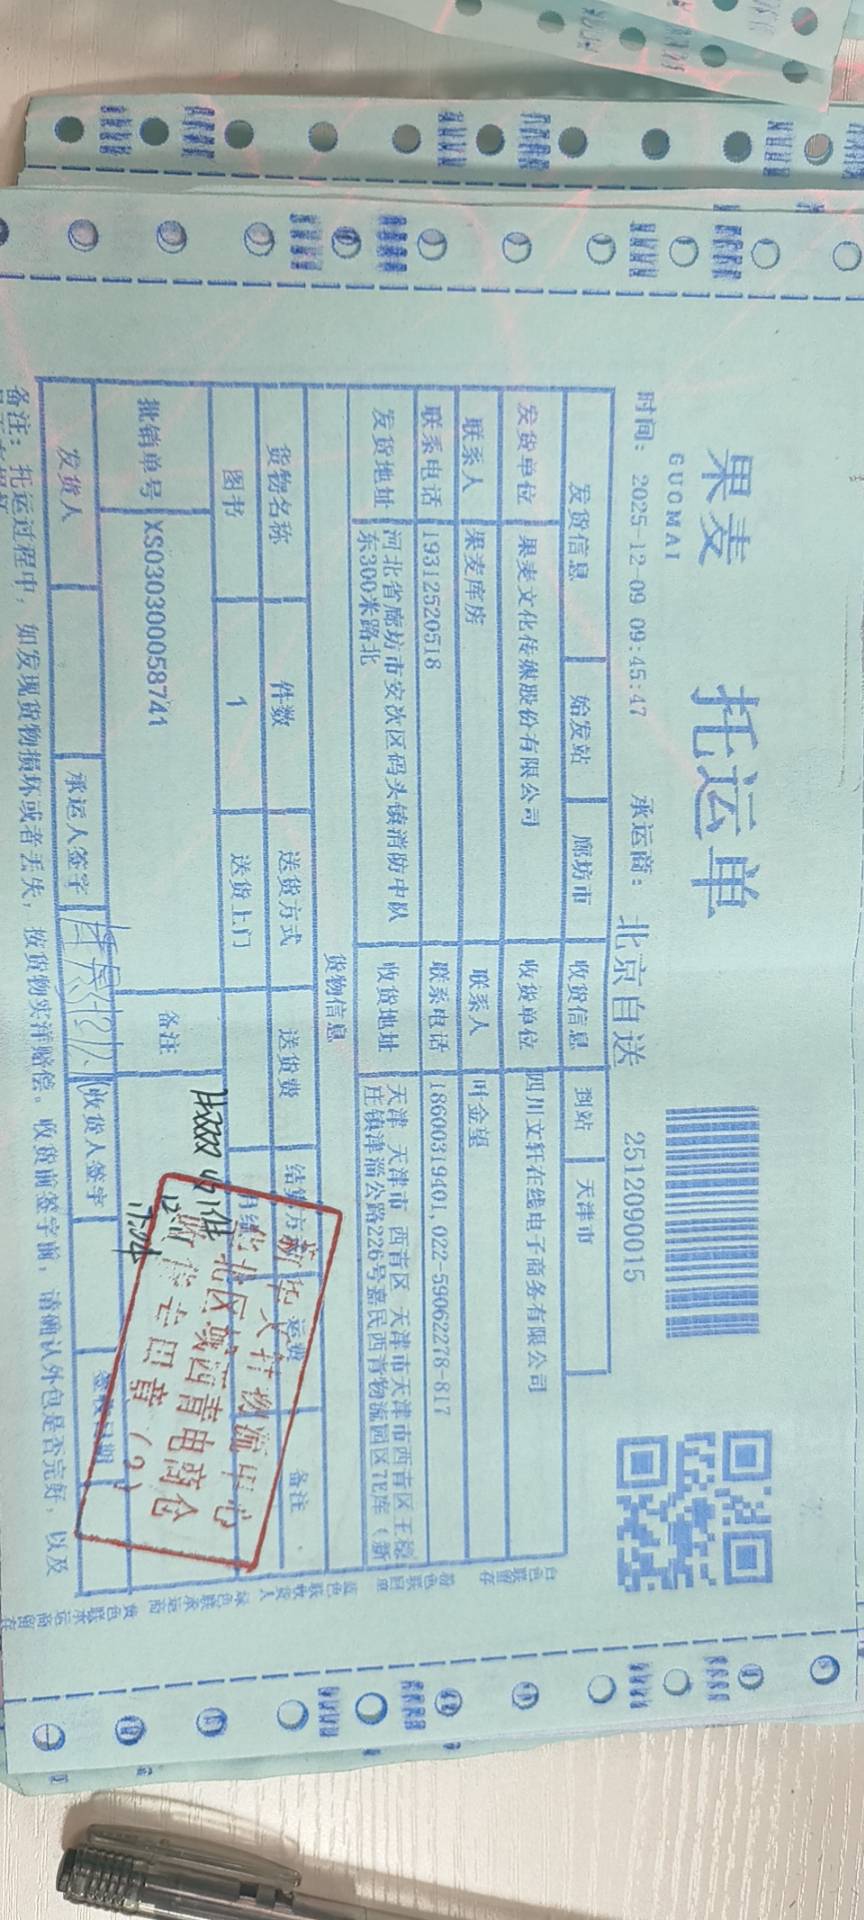 果麦 托运单
GUOMAI
时间: 2025-12-09 09:45:47 承运商: 北京自送 2512090015
发货信息 始发站 廊坊市 收货信息 到站 天津市
发货单位 果麦文化传媒股份有限公司 收货单位 四川文轩在线电子商务有限公司
联系人 果麦库房 联系人 叶金望
联系电话 19312520518 联系电话 18600319401,022-59062278-817
发货地址 河北省廊坊市安次区码头镇消防中队东300米路北 收货地址 天津 天津市 西青区 天津市天津市西青区王稳庄镇津淄公路226号嘉民西青物流园区7E库（新
货物信息
货物名称 件数 送货方式 送货费 结算方 运费 备注
图书 1 送货上门 月结
批销单号 XS030300058741 备注
发货人 承运人签字 收货人签字 签收日期
备注: 托运过程中, 如发现货物损坏或者丢失, 按货物实洋赔偿。收货前签字前, 请确认外包是否完好, 以及
新华文轩物流中心
华北区域西青电商仓
收货专用章（2）
白色联留存
蓝色联收货人
绿色联承运商
黄色联承运商留存